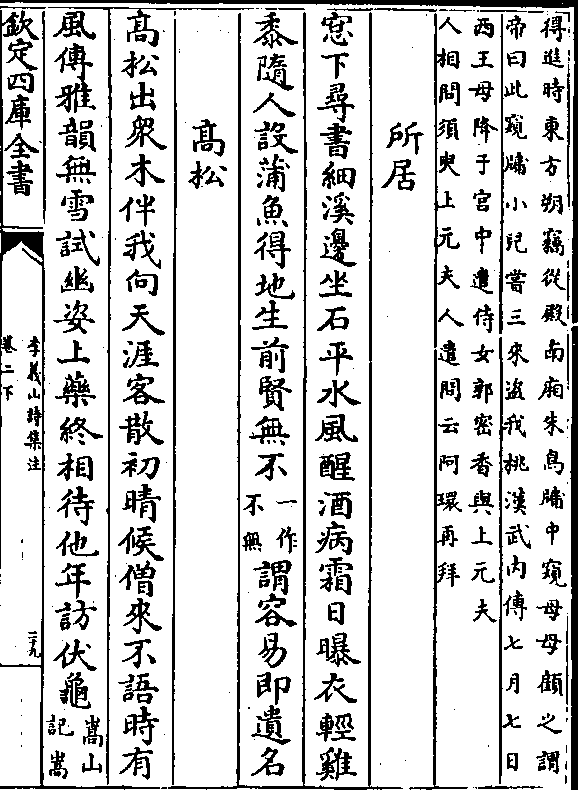 得逛時東方朔竊從殿南廂朱鳥牖中窺母母顧之謂
帝曰此窺牖小兒嘗三來盜我桃漢武内傳七月七日
西王母降于宫中遣侍女郭密香與上元夫
人相問須臾上元夫人遣問云阿環再拜
所居
窓下尋書細溪邊坐石平水風醒酒病霜日曝衣輕雞
黍隨人設蒲魚得地生前賢無不一作不無謂容易即遺名
髙松
髙松出衆木伴我向天涯客散初晴候僧來不語時有
風傳雅韻無雪試幽姿上藥終相待他年訪伏龜嵩山記嵩
欽定四庫全書
李義山詩集注
卷二下
三十九